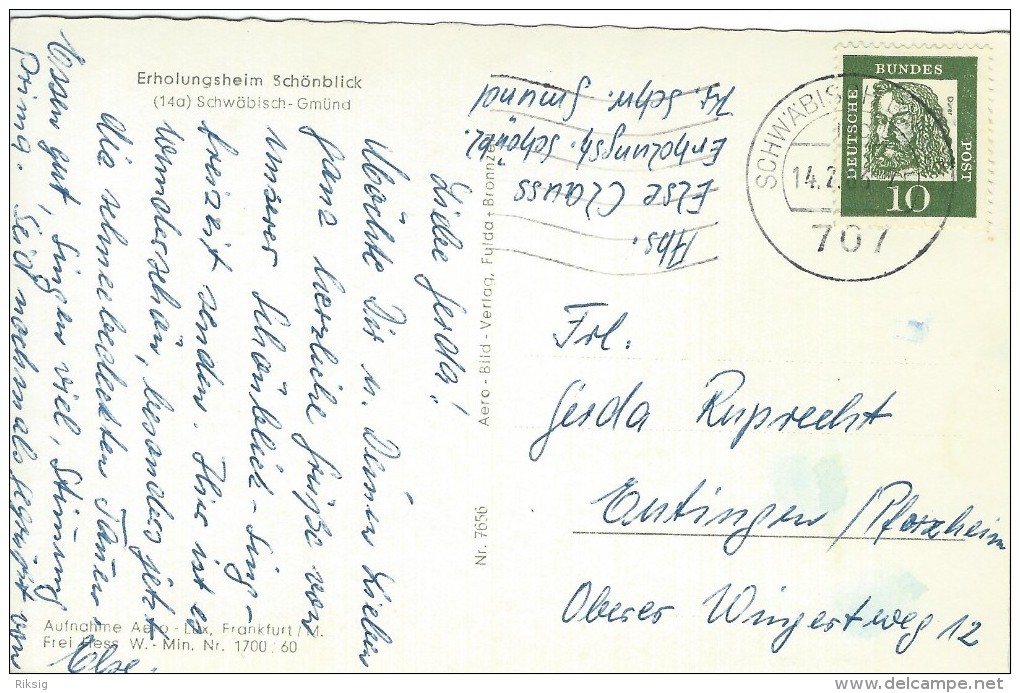 Erholungsheim Schönblick
(14a) Schwäbisch-Gmünd
Liebe Gerda!
Möchte Dir u. Deinen Lieben
ganz herzliche Grüße von
unserer Schönblick-Sing-
freizeit senden. Hier ist es
wunderschön, besonders jetzt
die schneebedeckten Tannen.
Essen gut, Singen viel, Stimmung
prima. Seid nochmals gegrüßt von
Else.
Aufnahme Aero-Lux, Frankfurt/M.
Frei Hess. W.-Min. Nr. 1700/60
Nr. 7656 Aero-Bild-Verlag, Fulda-Bronnzell
Abs.
Else Clauss
Erholungsh. Schönbl.
Schw. Gmünd
SCHWÄBISCH
14.2.63
707
DEUTSCHE
BUNDES
POST
Dürer
10
Frl.
Gerda Ruprecht
Eutingen/Pforzheim
Oberer Wingertweg 12
Riksig
delcampe.net